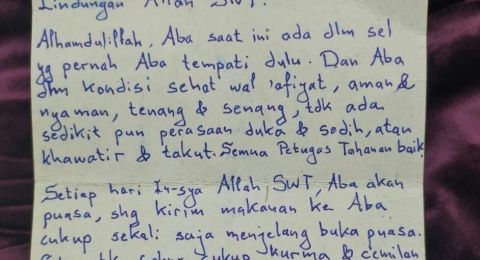 Lindungan Allah SWT.
Alhamdulillah, Aba saat ini ada dlm sel
yg pernah Aba tempati dulu. Dan Aba
dlm kondisi sehat wal 'afiyat, aman &
nyaman, tenang & senang, tdk ada
sedikit pun perasaan duka & sedih, atau
khawatir & takut. Semua Petugas Tahanan baik
Setiap hari In-sya Allah SWT, Aba akan
puasa, shg kirim makanan ke Aba
cukup sekali saja menjelang buka puasa.
cukup kurma & cemilan